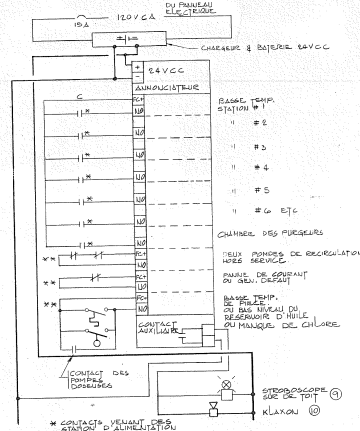 DU PANNEAU
ELECTRIQUE
120VCA
15A
CHARGEUR & BATERIE 24VCC
+
-
24VCC
ANNONCIATEUR
C
FC+
BASSE TEMP.
STATION #1
*
NO
" #2
*
NO
" #3
*
NO
" #4
*
NO
" #5
*
NO
" #6 ETC
*
NO
CHAMBRE DES PURGEURS
*
NO
**
FC+
NO
DEUX POMPES DE RECIRCULATION
HORS SERVICE.
**
FC+
NO
PANNE DE COURANT
OU GEN. DEFAUT
**
FC+
NO
BASSE TEMP.
DE PIECE.
OU BAS NIVEAU DU
RESERVOIR D'HUILE
OU MANQUE DE CHLORE
CONTACT
AUXILIAIRE
CONTACT DES
POMPES
DOSEUSES
STROBOSCOPE
SUR DE TOIT 9
KLAXON 10
* CONTACTS VENANT DES
STATION D'ALIMENTATION